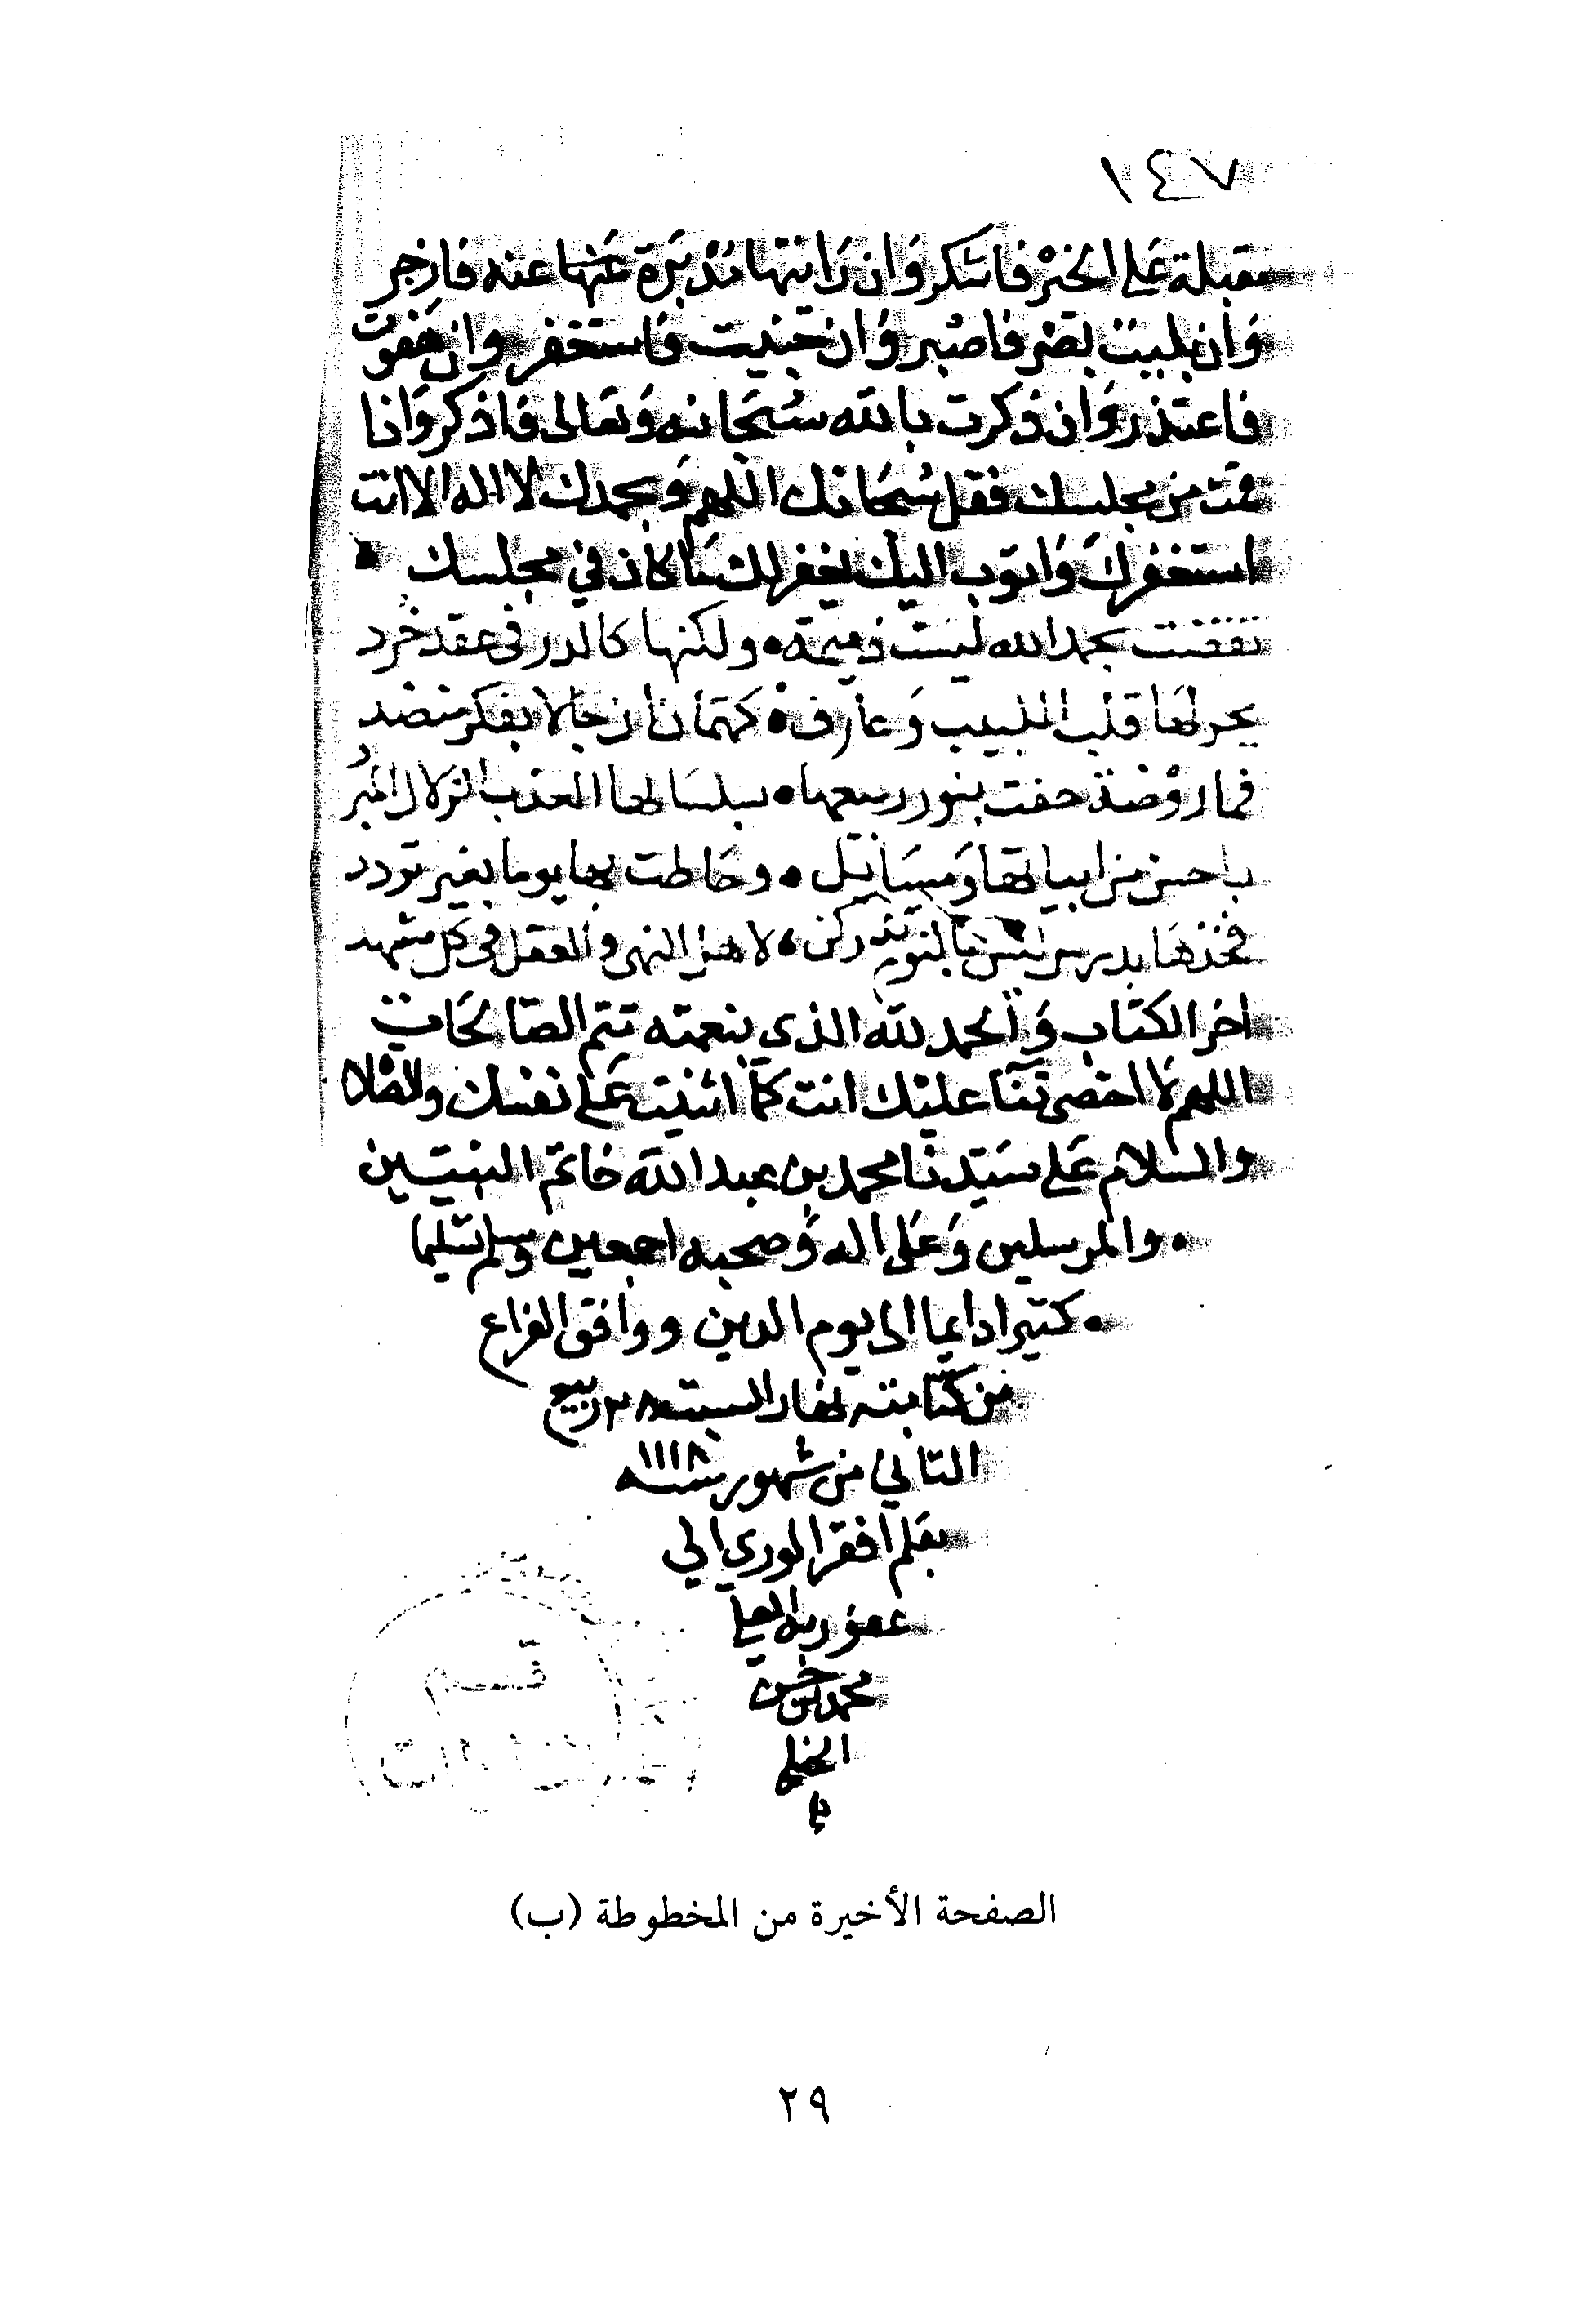 ١٤٧
مقبلة على الخير فاشكر وان رايتها مدبرة عنها عنه فازجر
وان بليت بضر فاصبر وان جنيت فاستغفر وان هفوت
فاعتذر وان ذكرت بالله سبحانه وتعالى فاذكر واذا
قمت من مجلسك فقل سبحانك اللهم وبحمدك لا اله الا انت
استغفرك واتوب اليك يغفر لك ما كان في مجلسك
تقضت بحمد الله ليست ذميمة ولكنها كالدر في عقد خرد
يحر لها قلب اللبيب وعارف كريمان ان جالا بفكر منضد
فما روضة حفت بنور ربيعها بسلسالها العذب الزلال المبرد
باحسن من ابياتها ومسايل وحاطت بها يوما بغير تردد
فخذها بدرس ليس بالنوم تدركن لاهل النهى والعقل في كل مشهد
اخر الكتاب والحمد لله الذي بنعمته تتم الصالحات
اللهم لا احصي ثنا عليك انت كما اثنيت على نفسك والصلاة
والسلام على سيدنا محمد بن عبد الله خاتم النبيين
والمرسلين وعلى اله وصحبه اجمعين وسلم تسليما
كثيرا دايما الى يوم الدين ووافق الفراغ
من كتابته نهار السبت ٢٨ ربيع
الثاني من شهور سنه ١١١٨
بقلم افقر الوري الي
عفو ربه العلي
محمد بن حسن
الحنبلي
قسم
الصفحة الأخيرة من المخطوطة (ب)
٢٩